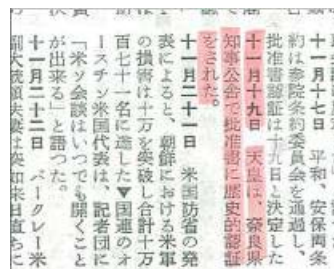 十一月十七日　平和、安保両条
約は参院条約委員会を通過し、
批准書認証は十九日と決定した
十一月十九日　天皇は、奈良県
知事公舎で批准書に歴史的認証
をされた。
十一月二十一日　米国防省の発
表によると、朝鮮における米軍
の損害は十万を突破し合計十万
百七十一名に達した▼国連のオ
ースチン米国代表は、記者団に
「米ソ会談はいつでも開くこと
が出来る」と語った。
十一月二十二日　バークレー米
副大統領夫妻は突如来日直ちに